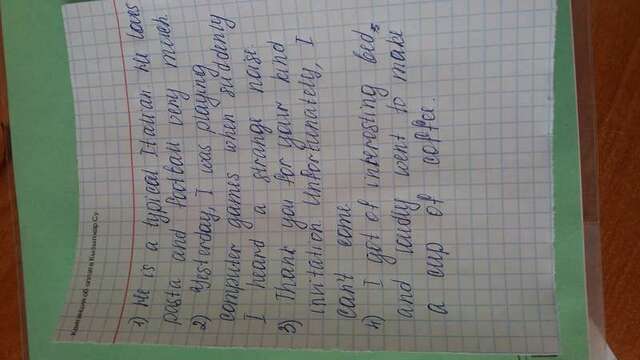 Квитанция об оплате Кызылжар Су
1) He is a typical Italian He loves
pasta and football very much
2) Yesterday, I was playing
computer games when suddenly
I heard a strange noise.
3) Thank you for your kind
invitation Unfortunately, I
can't come
4) I got of interesting bed,
and loudly went to make
a cup of coffee.